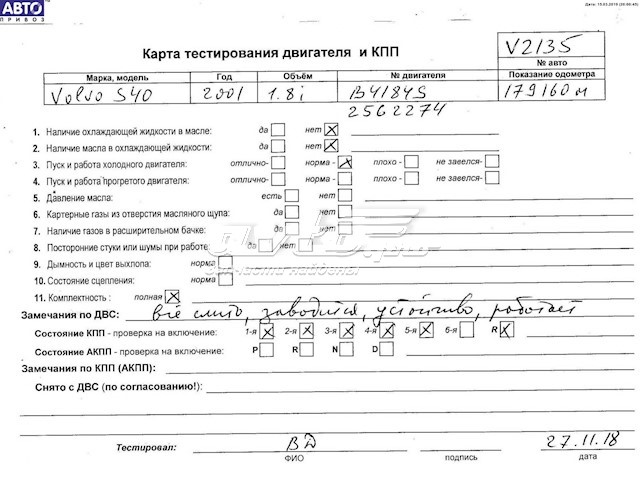 АВТО
ПРИВОЗ
Дата: 15.03.2019
Карта тестирования двигателя и КПП
V2135
№ авто
Марка, модель Год Объём № двигателя Показание одометра
Volvo S40 2001 1.8i B4184S 179160 м
2562274
1. Наличие охлаждающей жидкости в масле: да нет
2. Наличие масла в охлаждающей жидкости: да нет
3. Пуск и работа холодного двигателя: отлично- норма - плохо - не завелся-
4. Пуск и работа прогретого двигателя: отлично- норма - плохо - не завелся-
5. Давление масла: есть нет
6. Картерные газы из отверстия масляного щупа: да нет
7. Наличие газов в расширительном бачке: да нет
8. Посторонние стуки или шумы при работе: да нет
9. Дымность и цвет выхлопа: норма
10. Состояние сцепления: норма
11. Комплектность : полная
Замечания по ДВС: всё слито, заводится, устойчиво, работает
Состояние КПП - проверка на включение: 1-я 2-я 3-я 4-я 5-я 6-я R
Состояние АКПП - проверка на включение: P R N D
Замечания по КПП (АКПП):
Снято с ДВС (по согласованию!):
Тестировал: ВД 27.11.18
ФИО подпись дата